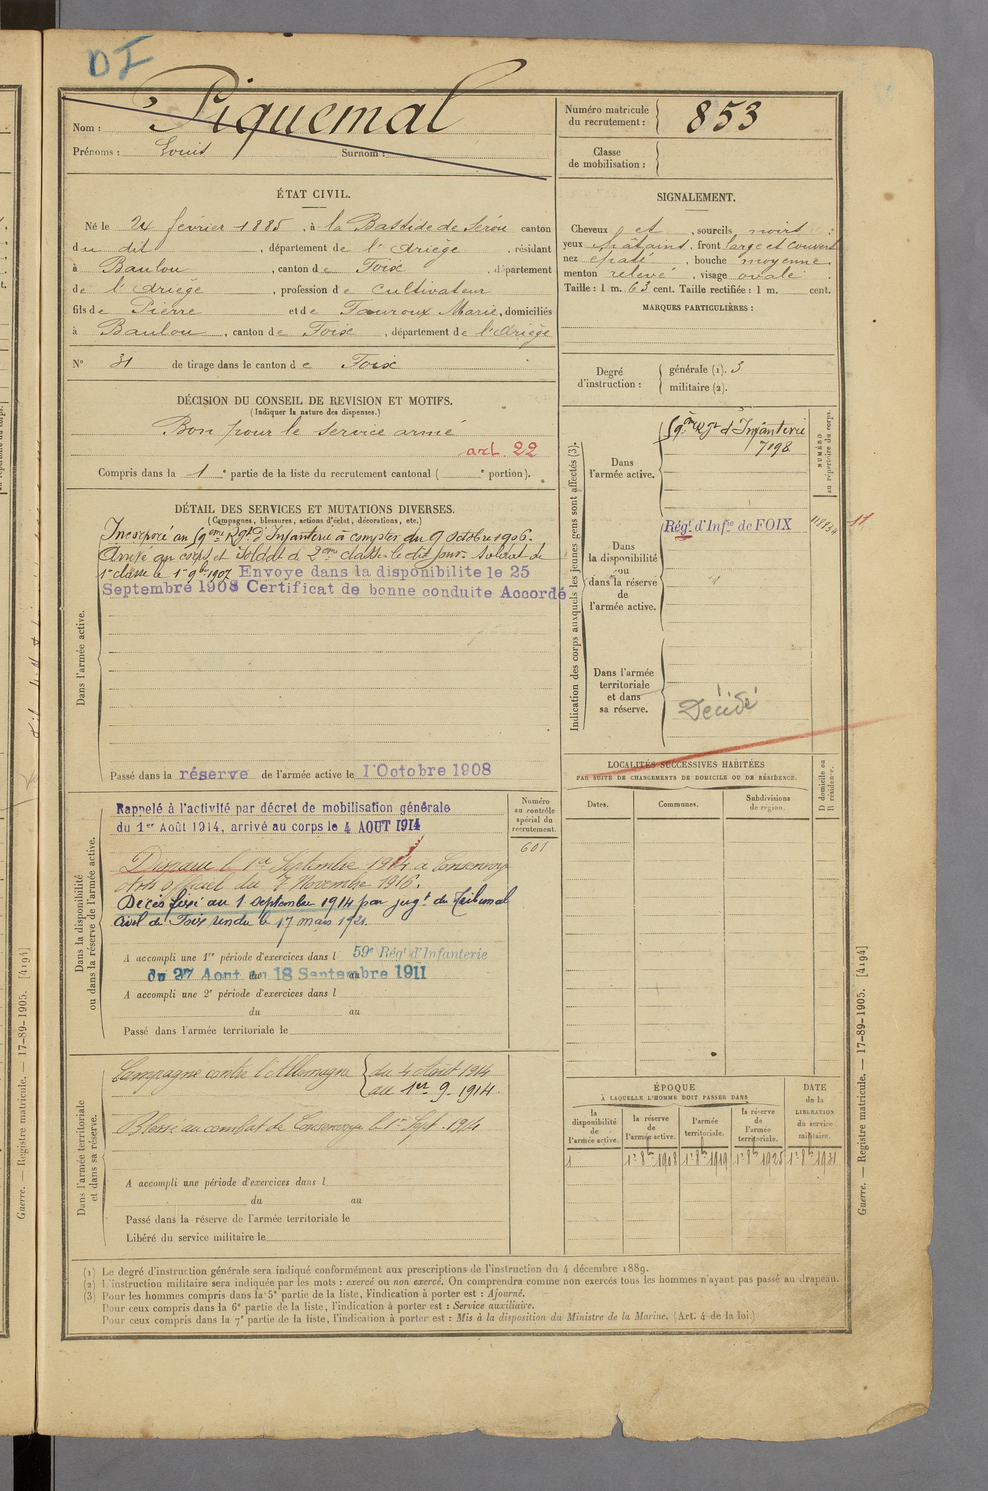 DI
Nom : Piquemal
Prénoms : Louis Surnom :
Numéro matricule du recrutement : 853
Classe de mobilisation :
ÉTAT CIVIL.
Né le 24 février 1885, à la Bastide de Sérou canton
du dit, département de l'Ariège, résidant
à Baulou, canton de Foix, département
de l'Ariège, profession de Cultivateur
fils de Pierre et de Tauroux Marie, domiciliés
à Baulou, canton de Foix, département de l'Ariège
N° 31 de tirage dans le canton de Foix
SIGNALEMENT.
Cheveux et, sourcils noirs
yeux châtains, front large et couvert
nez épaté, bouche moyenne
menton relevé, visage ovale
Taille : 1 m. 63 cent. Taille rectifiée : 1 m. cent.
MARQUES PARTICULIÈRES :
Degré d'instruction : générale (1). 3
militaire (2).
DÉCISION DU CONSEIL DE REVISION ET MOTIFS.
(Indiquer la nature des dispenses.)
Bon pour le service armé
art. 22
Compris dans la 1e partie de la liste du recrutement cantonal ( e portion).
DÉTAIL DES SERVICES ET MUTATIONS DIVERSES.
(Campagnes, blessures, actions d'éclat, décorations, etc.)
Dans l'armée active.
Incorporé au 59eme Rgt d'Infanterie à compter du 9 octobre 1906.
Arrivé au corps et soldat de 2eme classe le dit jour. Soldat de
1re classe le 1er 9bre 1907 Envoye dans la disponibilite le 25
Septembre 1908 Certificat de bonne conduite Accordé
Passé dans la réserve de l'armée active le 1 Octobre 1908
Indication des corps auxquels les jeunes gens sont affectés (3).
NUMÉRO au répertoire du corps.
Dans l'armée active.
59ème Rgt d'Infanterie
7198
Dans la disponibilité ou dans la réserve de l'armée active.
Régt d'Infie de FOIX
11
Dans l'armée territoriale et dans sa réserve.
Décédé
LOCALITÉS SUCCESSIVES HABITÉES
PAR SUITE DE CHANGEMENTS DE DOMICILE OU DE RÉSIDENCE.
Dates. Communes. Subdivisions de région. D domicile ou R résidence.
Dans la disponibilité ou dans la réserve de l'armée active.
Numéro au contrôle spécial du recrutement.
601
Rappelé à l'activité par décret de mobilisation générale
du 1er Août 1914, arrivé au corps le 4 AOUT 1914
Disparu le 1er Septembre 1914 à Consenvoye
Avis officiel du 7 Novembre 1916.
Décès fixé au 1 Septembre 1914 par jugt du Tribunal
Civil de Foix rendu le 17 mars 1921.
A accompli une 1re période d'exercices dans l 59e Régt d'Infanterie
du 27 Aout au 18 Septembre 1911
A accompli une 2e période d'exercices dans l
du au
Passé dans l'armée territoriale le
Dans l'armée territoriale et dans sa réserve.
Campagne contre l'Allemagne du 4 Août 1914
au 1er 9. 1914.
Blessé au combat de Consenvoye le 1er Sept. 1914
A accompli une période d'exercices dans l
du au
Passé dans la réserve de l'armée territoriale le
Libéré du service militaire le
ÉPOQUE
À LAQUELLE L'HOMME DOIT PASSER DANS
DATE de la LIBÉRATION du service militaire.
la disponibilité de l'armée active. la réserve de l'armée active. l'armée territoriale. la réserve de l'armée territoriale.
1 1er 8bre 1908 1er 8bre 1919 1er 8bre 1925 1er 8bre 1931
(1) Le degré d'instruction générale sera indiqué conformément aux prescriptions de l'instruction du 4 décembre 1889.
(2) L'instruction militaire sera indiquée par les mots : exercé ou non exercé. On comprendra comme non exercés tous les hommes n'ayant pas passé au drapeau.
(3) Pour les hommes compris dans la 5e partie de la liste, l'indication à porter est : Ajourné.
Pour ceux compris dans la 6e partie de la liste, l'indication à porter est : Service auxiliaire.
Pour ceux compris dans la 7e partie de la liste, l'indication à porter est : Mis à la disposition du Ministre de la Marine. (Art. 4 de la loi.)
Guerre. — Registre matricule. — 17-89-1905. [4194]
Guerre. — Registre matricule. — 17-89-1905. [4194]